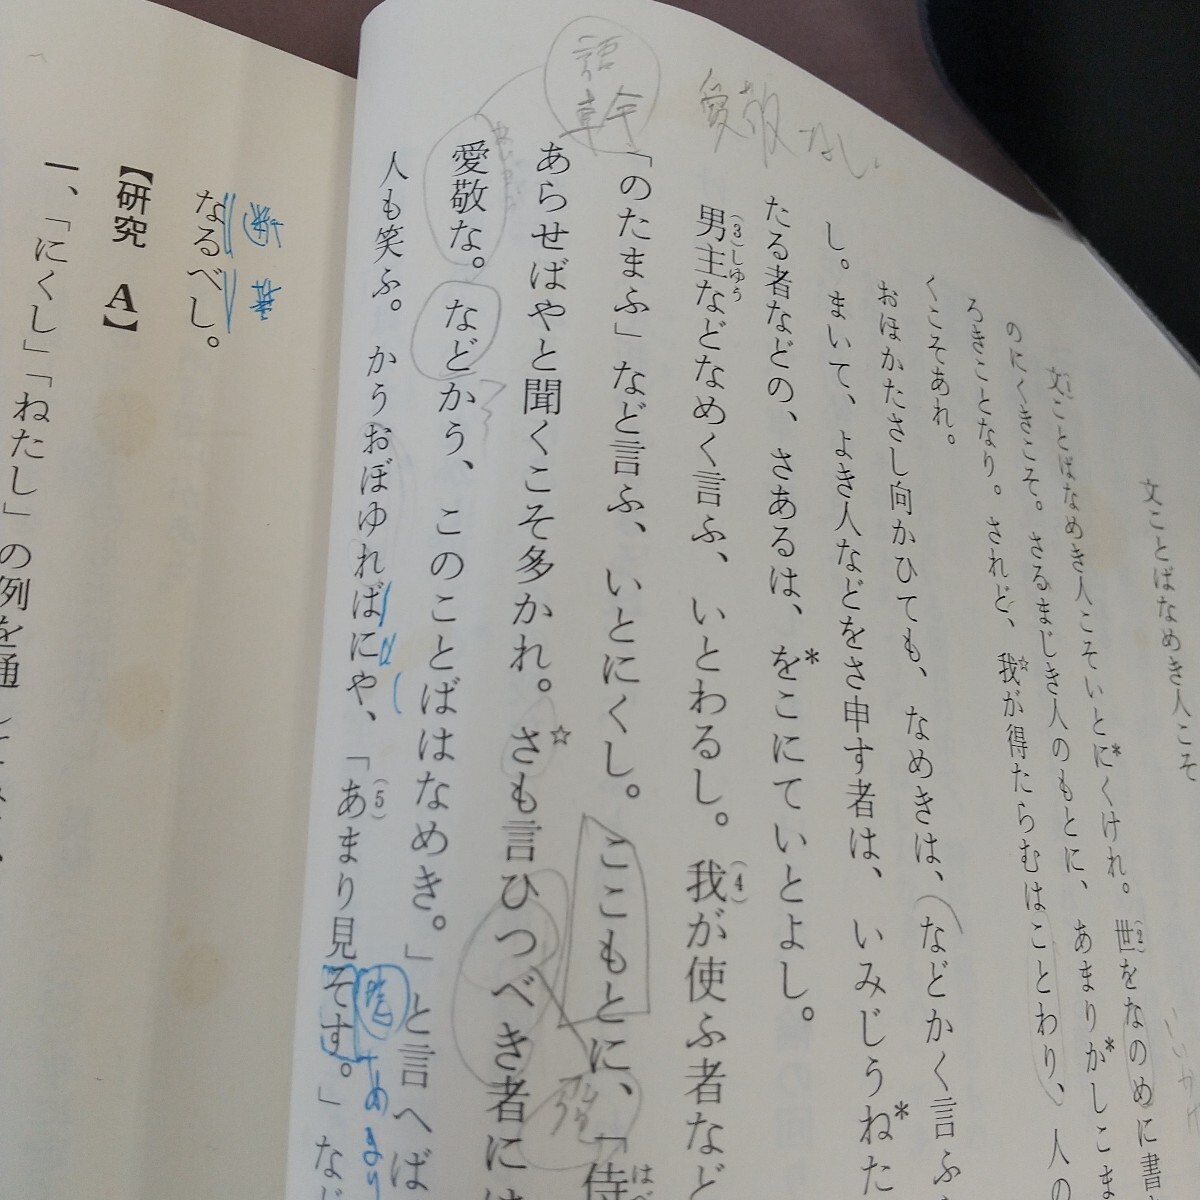 文ことばなめき人こそ
文ことばなめき人こそいとにくけれ。世をなのめに書
のにくきこそ。さるまじき人のもとに、あまりかしこま
ろきことなり。されど、我が得たらむはことわり、人の
くこそあれ。
おほかたさし向かひても、なめきは、などかく言ふ
し。まいて、よき人などをさ申す者は、いみじうねた
たる者などの、さあるは、をこにていとよし。
男主などなめく言ふ、いとわるし。我が使ふ者など
「のたまふ」など言ふ、いとにくし。ここもとに、「侍
あらせばやと聞くこそ多かれ。さも言ひつべき者には
愛敬な。などかう、このことばはなめき。」と言へば
人も笑ふ。かうおぼゆればにや、「あまり見そす。」など
なるべし。
【研究 A】
一、「にくし」「ねたし」の例を通
語幹
愛敬なし